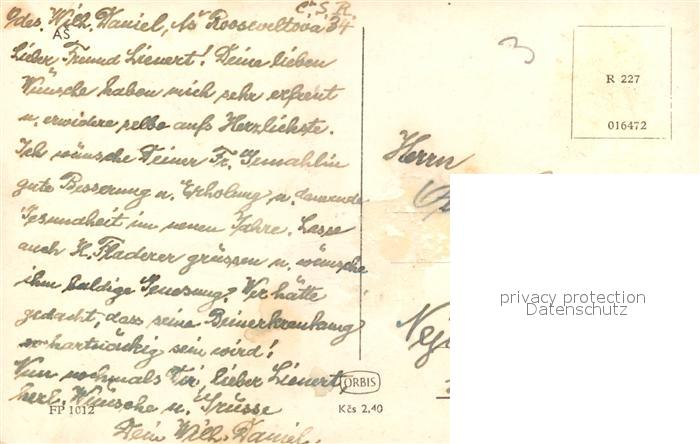 Č.S.R.
Odes. Wilh. Daniel, Aš Rooseveltova 34
AŠ
Lieber Freund Lienert! Deine lieben
Wünsche haben mich sehr erfreut
u. erwidere selbe aufs Herzlichste.
Ich wünsche Deiner Fr. Gemahlin
gute Besserung u. Erholung u. dauernde
Gesundheit im neuen Jahre. Lasse
auch H. Fladerer grüssen u. wünsche
ihm baldige Genesung. Wer hätte
gedacht, dass seine Beinerkrankung
so hartnäckig sein wird!
Nun nochmals Dir, lieber Lienert,
herzl. Wünsche u. Grüsse
Dein Wilh. Daniel.
FP 1012
ORBIS
Kčs 2,40
3
R 227
016472
Herrn
privacy protection
Datenschutz